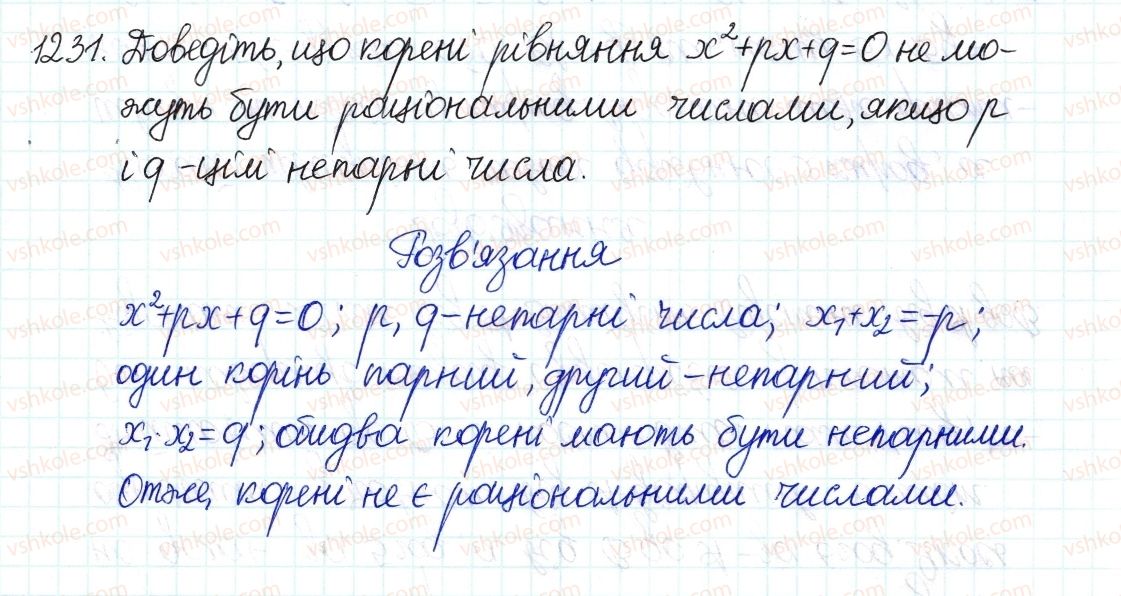 1231. Доведіть, що корені рівняння x²+px+q=0 не мо-
жуть бути раціональними числами, якщо p
і q -цілі непарні числа.
Розв'язання
x²+px+q=0; p, q-непарні числа; x₁+x₂=-p;
один корінь парний, другий-непарний;
x₁·x₂=q; обидва корені мають бути непарними.
Отже, корені не є раціональними числами.